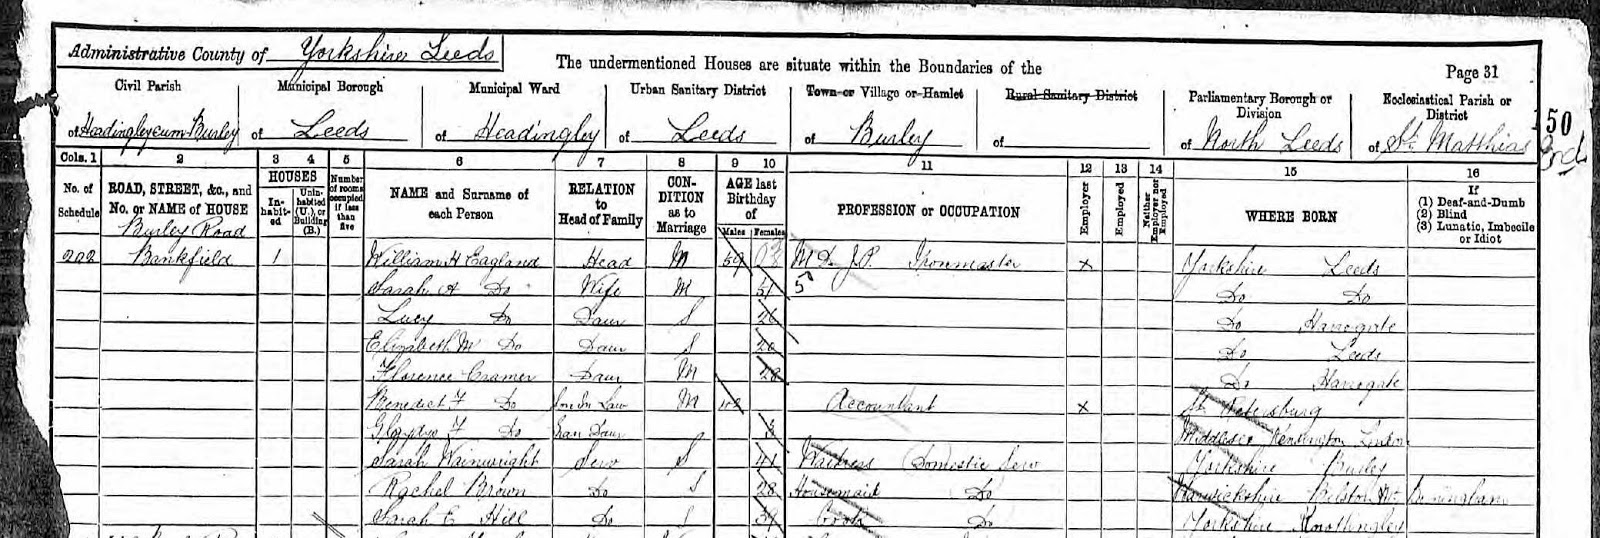 Administrative County of Yorkshire Leeds
The undermentioned Houses are situate within the Boundaries of the
Page 31
Civil Parish
of Headingley cum Burley
Municipal Borough
of Leeds
Municipal Ward
of Headingley
Urban Sanitary District
of Leeds
Town or Village or Hamlet
of Burley
Rural Sanitary District
of
Parliamentary Borough or Division
of North Leeds
Ecclesiastical Parish or District
of St. Matthias
150
Cols. 1 2 3 4 5 6 7 8 9 10 11 12 13 14 15 16
No. of Schedule
ROAD, STREET, &c., and No. or NAME of HOUSE
HOUSES
Inhabited
Uninhabited (U.), or Building (B.)
Number of rooms occupied if less than five
NAME and Surname of each Person
RELATION to Head of Family
CONDITION as to Marriage
AGE last Birthday of
Males Females
PROFESSION or OCCUPATION
Employer
Employed
Neither Employer nor Employed
WHERE BORN
If
(1) Deaf-and-Dumb
(2) Blind
(3) Lunatic, Imbecile or Idiot
Burley Road
202 Bankfield 1 William H Eagland Head M 59 J.P. Ironmaster x Yorkshire Leeds
Sarah A Do Wife M 51 Do Do
Lucy Do Daur S Do Harrogate
Elizabeth M Do Daur S 20 Do Leeds
Florence Cramer Daur M 28 Do Harrogate
Benedict F Do Son In Law M Accountant x St Petersburg
F Do Gran Daur Middlesex Kensington London
Sarah Wainwright Serv S 41 Waitress Domestic Serv Yorkshire Burley
Rachel Brown Do S 28 Housemaid Do Warwickshire Birmingham
Sarah E Hill Do S 39 Cook Do Yorkshire Knottingley